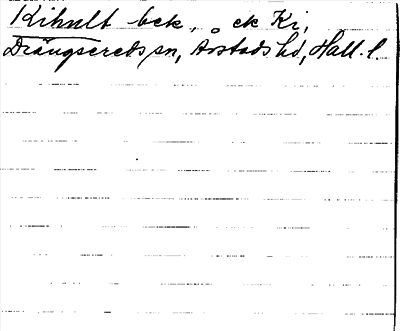 Kihult bek, ek Ki,
Drängsereds sn, Årstads hd, Hall. l.